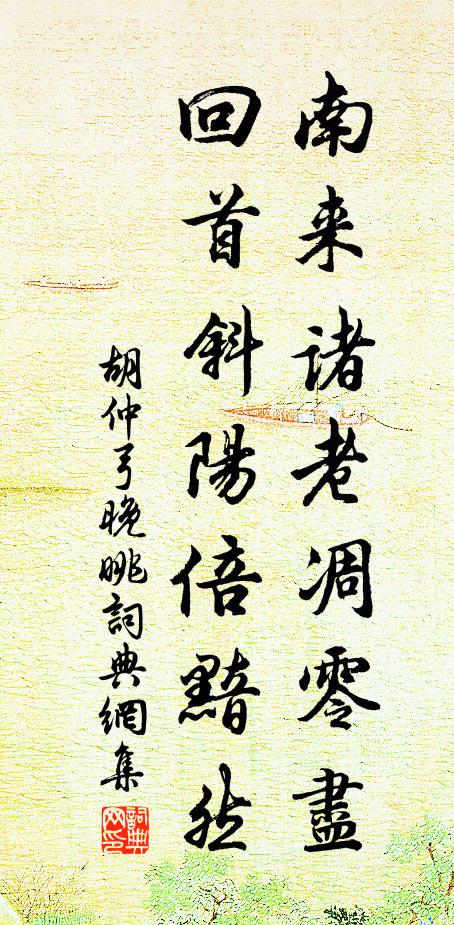 南来诸老凋零盡
回首斜陽倍黯然
胡仲弓晚眺詞典網集
詞典网印